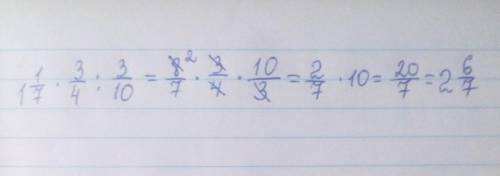 1 1/7 · 3/4 : 3/10 = 8/7 ² · 3/4 · 10/3 = 2/7 · 10 = 20/7 = 2 6/7